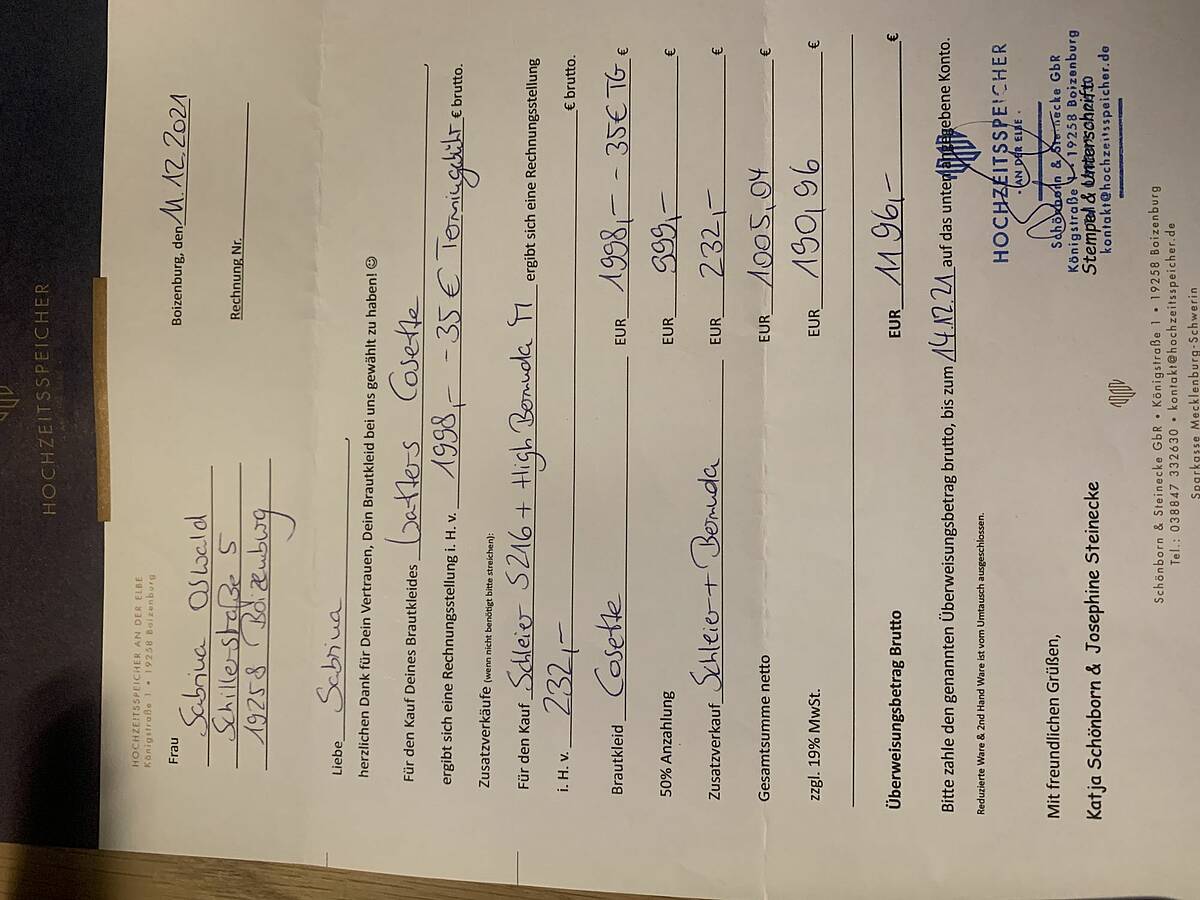 HOCHZEITSSPEICHER
HOCHZEITSSPEICHER AN DER ELBE
Königstraße 1 • 19258 Boizenburg
Frau
Sabrina Oswald
Schillerstraße 5
19258 Boizenburg
Boizenburg, den 11.12.2021
Rechnung Nr.
Liebe Sabrina,
herzlichen Dank für Dein Vertrauen, Dein Brautkleid bei uns gewählt zu haben! ☺
Für den Kauf Deines Brautkleides Watters Cosette,
ergibt sich eine Rechnungsstellung i. H. v. 1998,- - 35€ Termingebühr € brutto.
Zusatzverkäufe (wenn nicht benötigt bitte streichen):
Für den Kauf Schleier S216 + High Bermuda M ergibt sich eine Rechnungsstellung
i. H. v. 232,- € brutto.
Brautkleid Cosette EUR 1998,- - 35€ TG €
50% Anzahlung EUR 999,- €
Zusatzverkauf Schleier + Bermuda EUR 232,- €
Gesamtsumme netto EUR 1005,04 €
zzgl. 19% MwSt. EUR 190,96 €
Überweisungsbetrag Brutto EUR 1196,- €
Bitte zahle den genannten Überweisungsbetrag brutto, bis zum 14.12.21 auf das unten angegebene Konto.
Reduzierte Ware & 2nd Hand Ware ist vom Umtausch ausgeschlossen.
HOCHZEITSSPEICHER
• AN DER ELBE •
Schönborn & Steinecke GbR
Königstraße 1 • 19258 Boizenburg
kontakt@hochzeitsspeicher.de
Stempel & Unterschrift
Mit freundlichen Grüßen,
Katja Schönborn & Josephine Steinecke
Schönborn & Steinecke GbR • Königstraße 1 • 19258 Boizenburg
Tel.: 038847 332630 • kontakt@hochzeitsspeicher.de
Sparkasse Mecklenburg-Schwerin